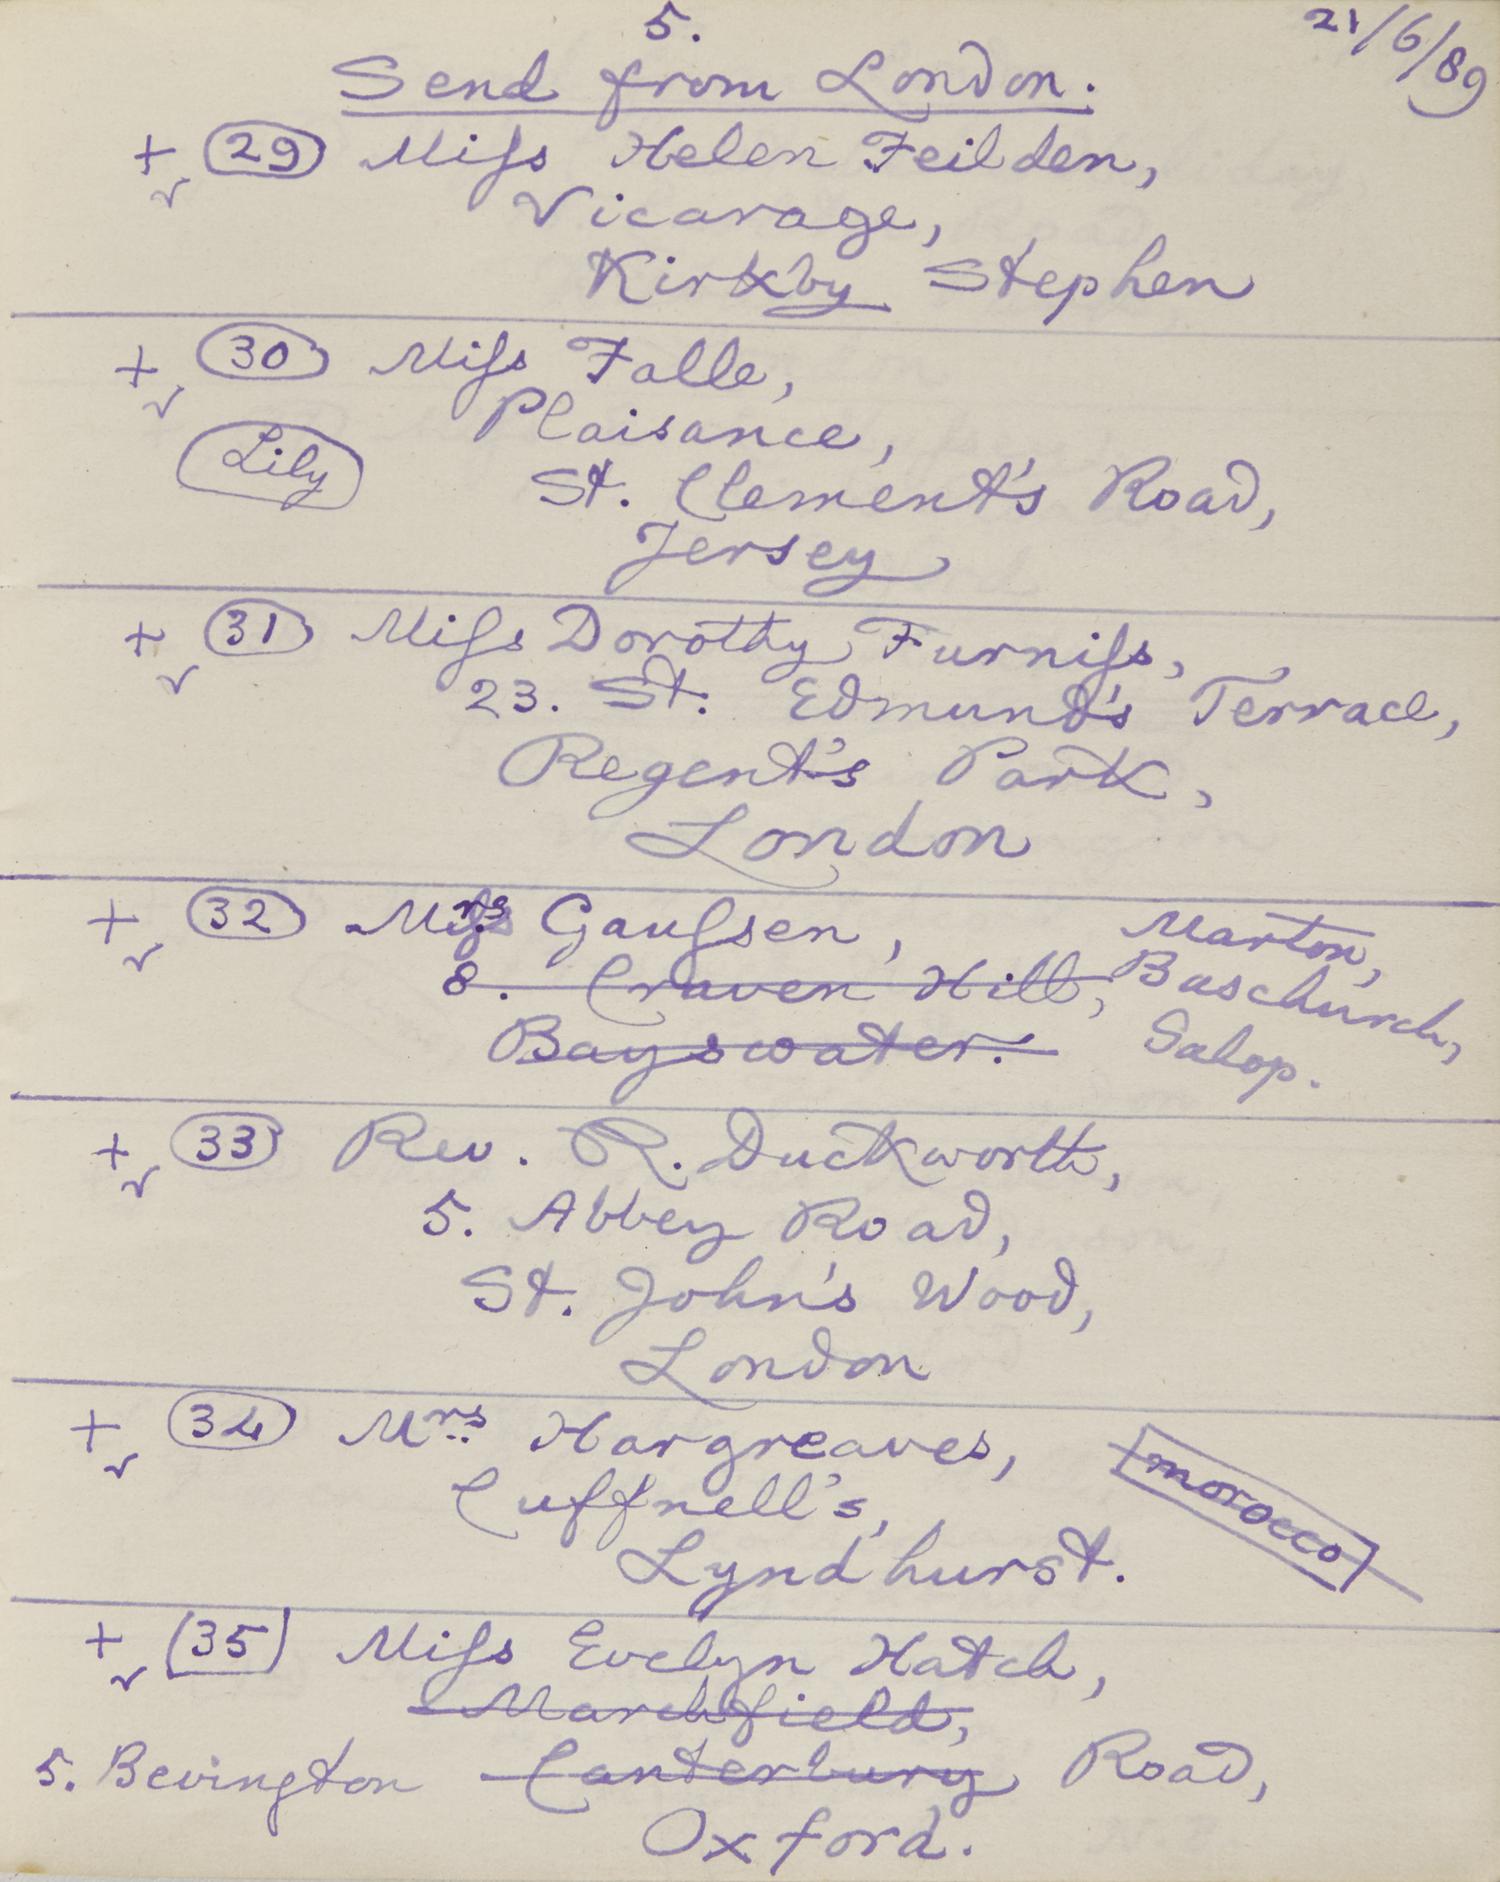 5.
21/6/89
Send from London.
+ 29 Miſs Helen Feilden,
✓ Vicarage,
Kirkby Stephen
+ 30 Miſs Falle,
✓ Plaisance,
Lily
St. Clement's Road,
Jersey
+ 31 Miſs Dorothy Furniſs,
✓ 23. St. Edmund's Terrace,
Regent's Park,
London
+ 32 Mrs Gauſsen, Marton,
✓ 8. Craven Hill, Baschurch,
Bayswater. Salop.
+ 33 Rev. R. Duckworth,
✓ 5. Abbey Road,
St. John's Wood,
London
+ 34 Mrs Hargreaves, morocco
✓ Cuffnell's,
Lyndhurst.
+ 35 Miſs Evelyn Hatch,
✓ Marchfield,
5. Bevington Canterbury Road,
Oxford.